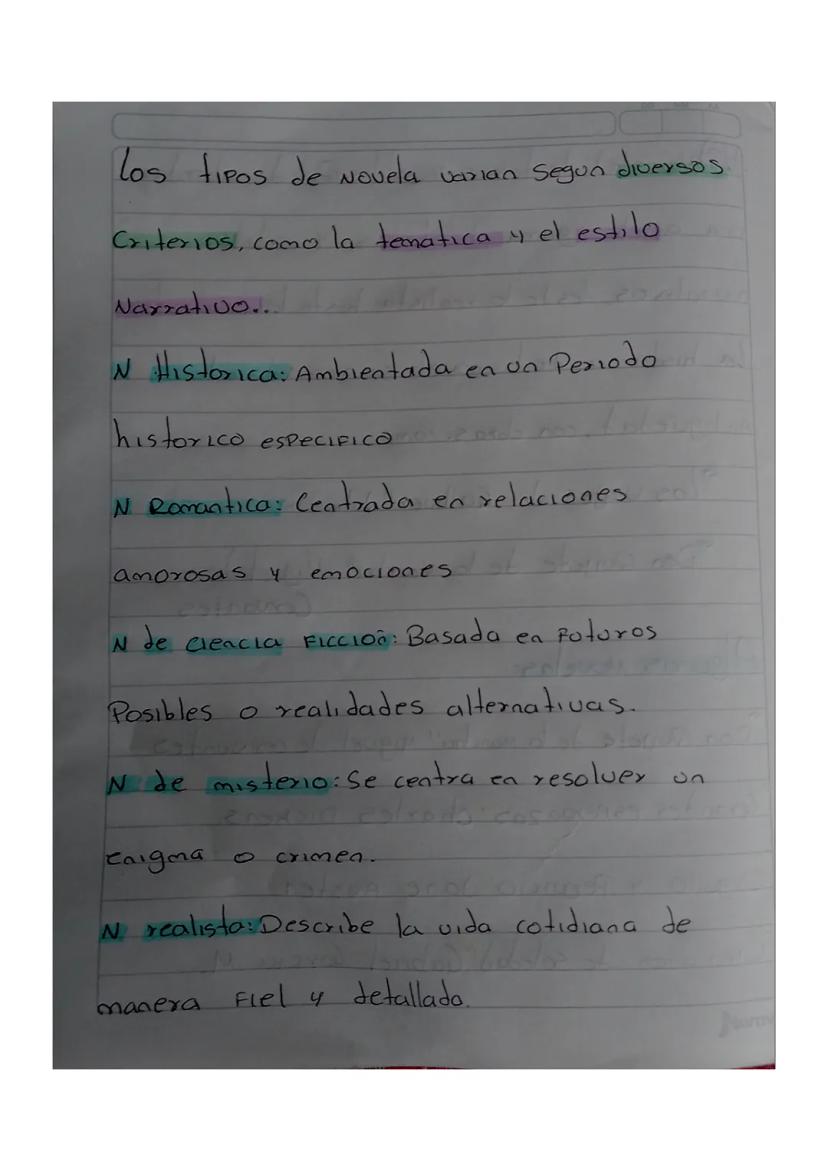 los tipos de Novela varian segun diversos
Criterios, como la tematica y el estilo
Narrativo...
N Historica: Ambientada en un Periodo
historico especifico
N Romantica: Centrada en relaciones
amorosas y emociones
N de ciencia Ficcion: Basada en Futuros
Posibles o realidades alternativas.
N de misterio: Se centra en resolver un
enigma o crimen.
N realista: Describe la vida cotidiana de
manera Fiel y detallada.